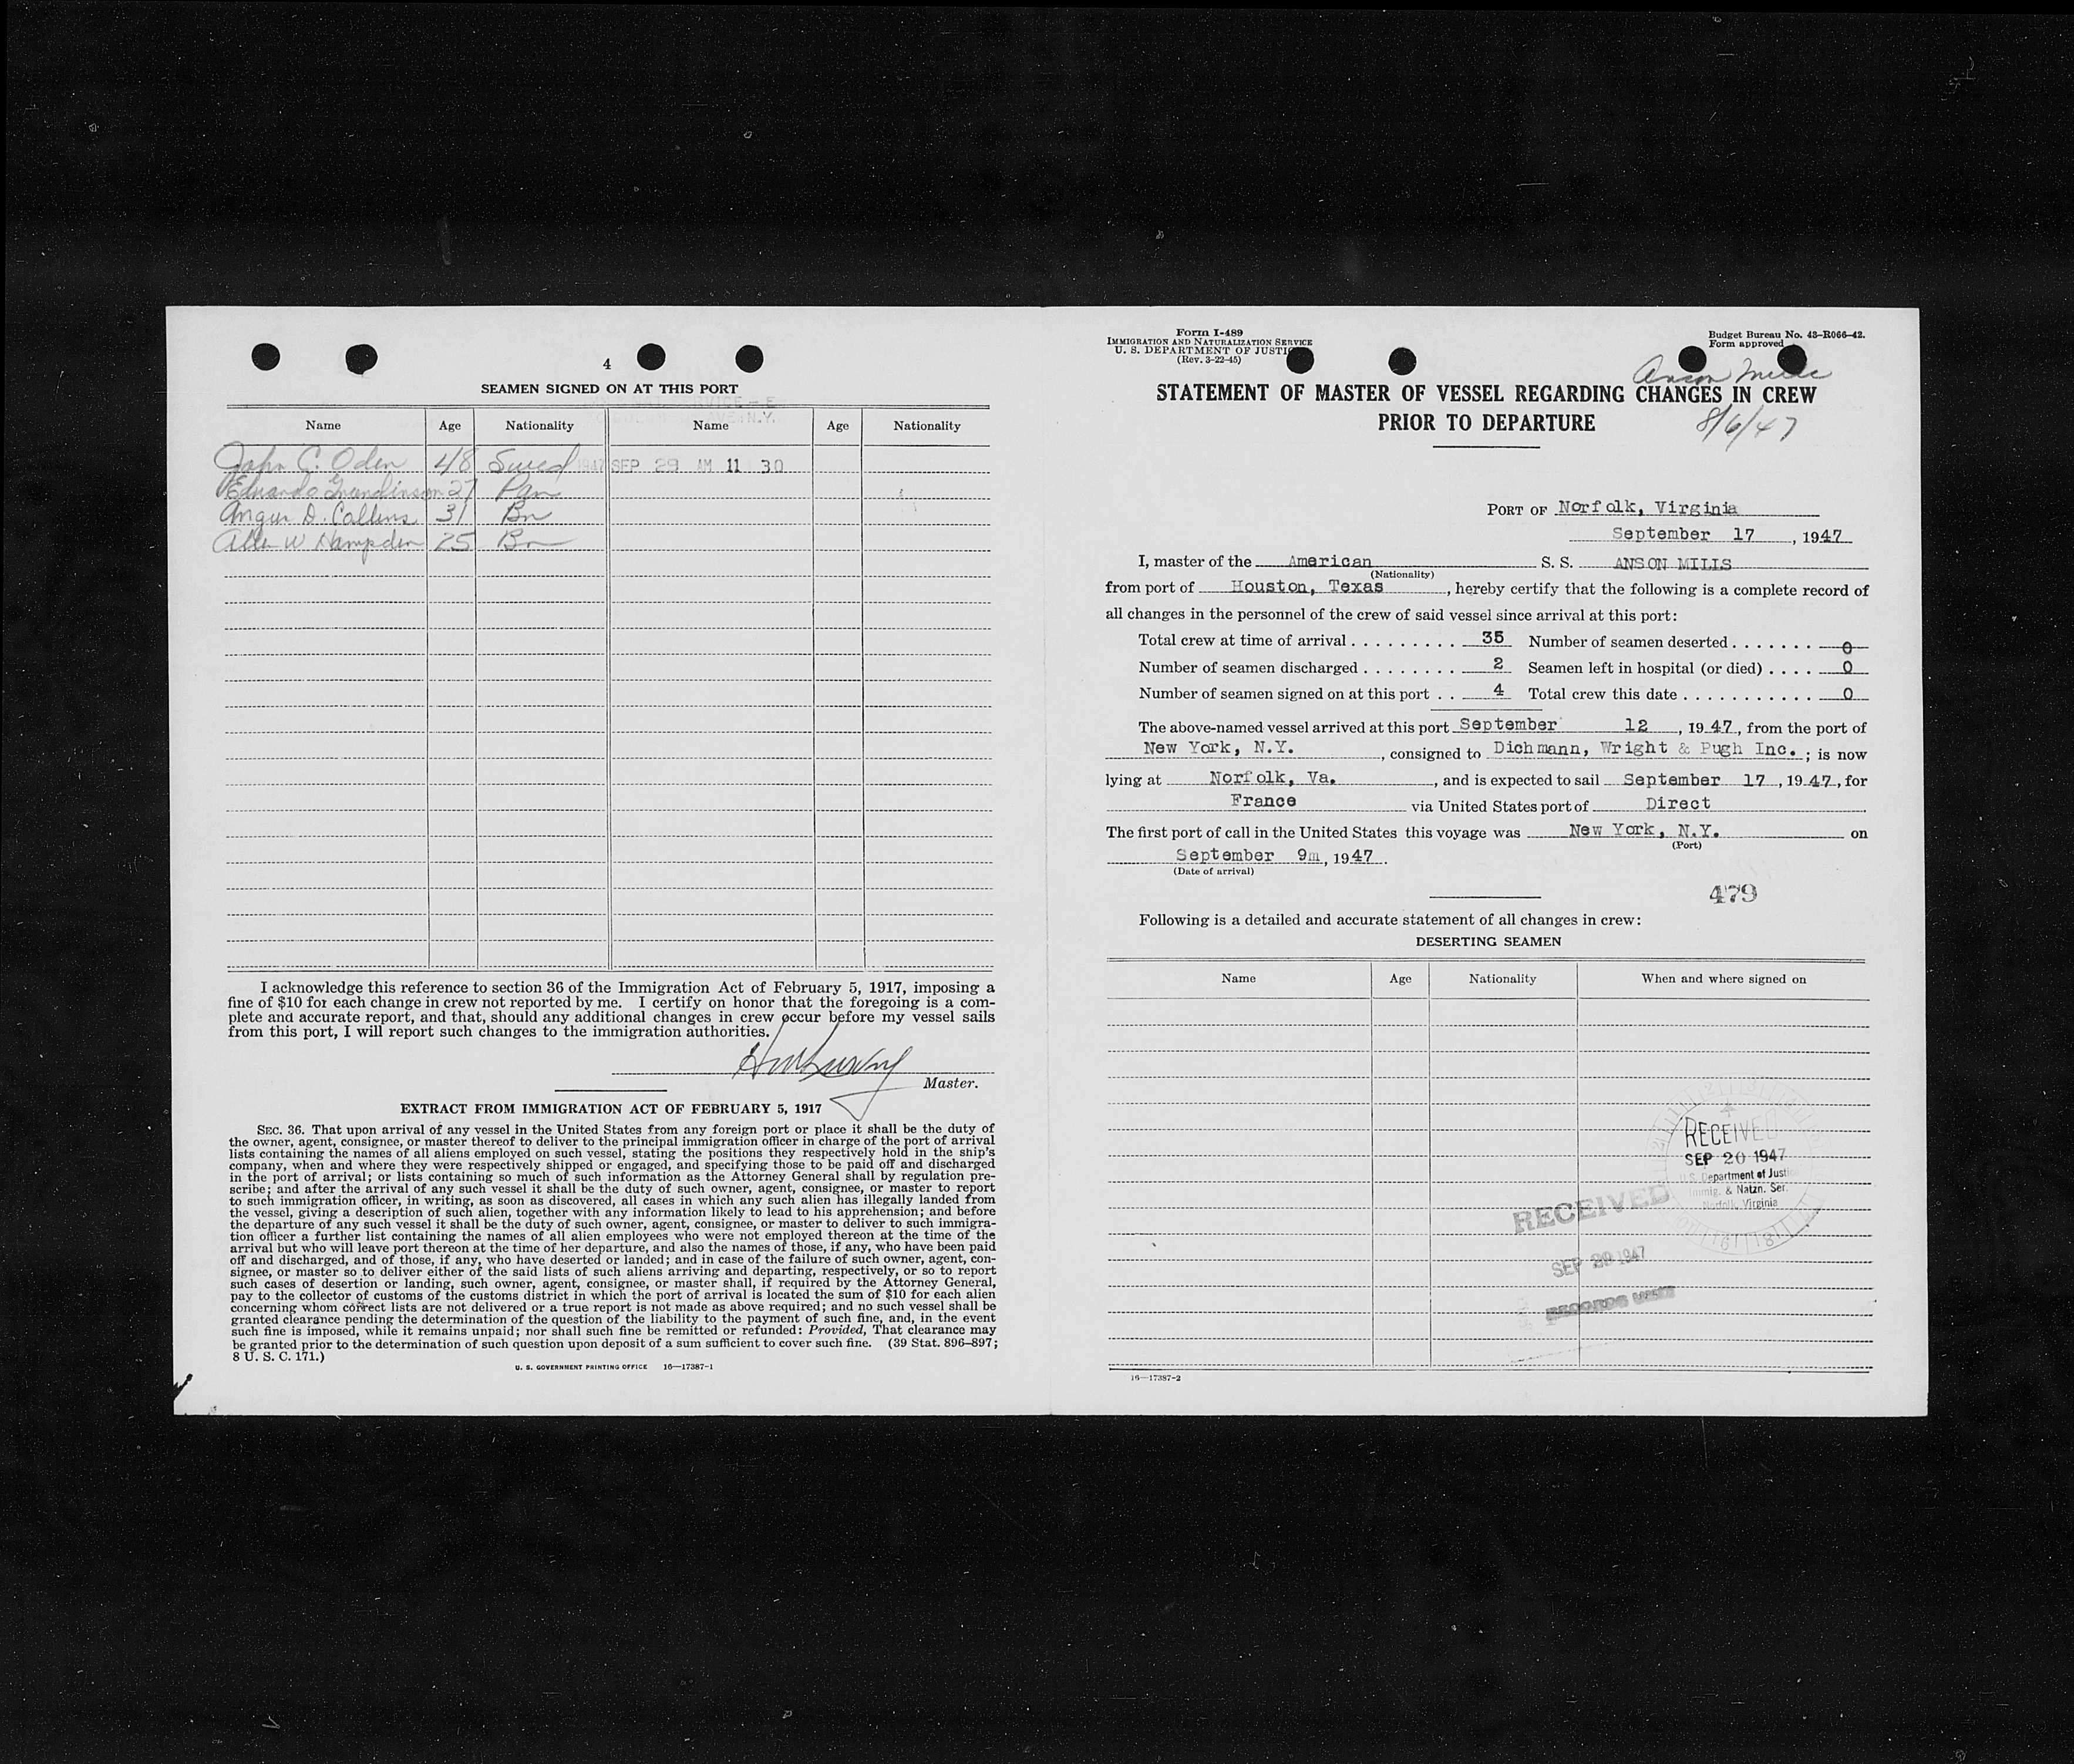 4
SEAMEN SIGNED ON AT THIS PORT
Name Age Nationality Name Age Nationality
John C. Oden 48 Swed 1947 SEP 29 AM 11 30
Eduardo Grandinson 27 Pan
Angus D. Collins 31 Br
Allen W Hampden 25 Br
I acknowledge this reference to section 36 of the Immigration Act of February 5, 1917, imposing a
fine of $10 for each change in crew not reported by me. I certify on honor that the foregoing is a com-
plete and accurate report, and that, should any additional changes in crew occur before my vessel sails
from this port, I will report such changes to the immigration authorities.
Master.
EXTRACT FROM IMMIGRATION ACT OF FEBRUARY 5, 1917
SEC. 36. That upon arrival of any vessel in the United States from any foreign port or place it shall be the duty of
the owner, agent, consignee, or master thereof to deliver to the principal immigration officer in charge of the port of arrival
lists containing the names of all aliens employed on such vessel, stating the positions they respectively hold in the ship's
company, when and where they were respectively shipped or engaged, and specifying those to be paid off and discharged
in the port of arrival; or lists containing so much of such information as the Attorney General shall by regulation pre-
scribe; and after the arrival of any such vessel it shall be the duty of such owner, agent, consignee, or master to report
to such immigration officer, in writing, as soon as discovered, all cases in which any such alien has illegally landed from
the vessel, giving a description of such alien, together with any information likely to lead to his apprehension; and before
the departure of any such vessel it shall be the duty of such owner, agent, consignee, or master to deliver to such immigra-
tion officer a further list containing the names of all alien employees who were not employed thereon at the time of the
arrival but who will leave port thereon at the time of her departure, and also the names of those, if any, who have been paid
off and discharged, and of those, if any, who have deserted or landed; and in case of the failure of such owner, agent, con-
signee, or master so to deliver either of the said lists of such aliens arriving and departing, respectively, or so to report
such cases of desertion or landing, such owner, agent, consignee, or master shall, if required by the Attorney General,
pay to the collector of customs of the customs district in which the port of arrival is located the sum of $10 for each alien
concerning whom correct lists are not delivered or a true report is not made as above required; and no such vessel shall be
granted clearance pending the determination of the question of the liability to the payment of such fine, and, in the event
such fine is imposed, while it remains unpaid; nor shall such fine be remitted or refunded: Provided, That clearance may
be granted prior to the determination of such question upon deposit of a sum sufficient to cover such fine. (39 Stat. 896–897;
8 U. S. C. 171.)
U. S. GOVERNMENT PRINTING OFFICE 16—17387-1
Form I-489
IMMIGRATION AND NATURALIZATION SERVICE
U. S. DEPARTMENT OF JUSTICE
(Rev. 3-22-45)
Budget Bureau No. 43-R066-42.
Form approved
Anson Mills
STATEMENT OF MASTER OF VESSEL REGARDING CHANGES IN CREW
PRIOR TO DEPARTURE
8/6/47
PORT OF Norfolk, Virginia
September 17, 1947
I, master of the American S. S. ANSON MILLS
(Nationality)
from port of Houston, Texas, hereby certify that the following is a complete record of
all changes in the personnel of the crew of said vessel since arrival at this port:
Total crew at time of arrival . . . . . . . . . 35 Number of seamen deserted . . . . . . . 0
Number of seamen discharged . . . . . . . . 2 Seamen left in hospital (or died) . . . . 0
Number of seamen signed on at this port . . 4 Total crew this date . . . . . . . . . . . . 0
The above-named vessel arrived at this port September 12, 1947, from the port of
New York, N.Y., consigned to Dichmann, Wright & Pugh Inc. ; is now
lying at Norfolk, Va., and is expected to sail September 17, 1947, for
France via United States port of Direct
The first port of call in the United States this voyage was New York, N.Y. on
(Port)
September 9m, 1947.
(Date of arrival)
479
Following is a detailed and accurate statement of all changes in crew:
DESERTING SEAMEN
Name Age Nationality When and where signed on
RECEIVED
SEP 20 1947
U.S. Department of Justice
Immig. & Natzn. Ser.
Norfolk, Virginia
RECEIVED
SEP 29 1947
RECORDS UNIT
16—17387-2